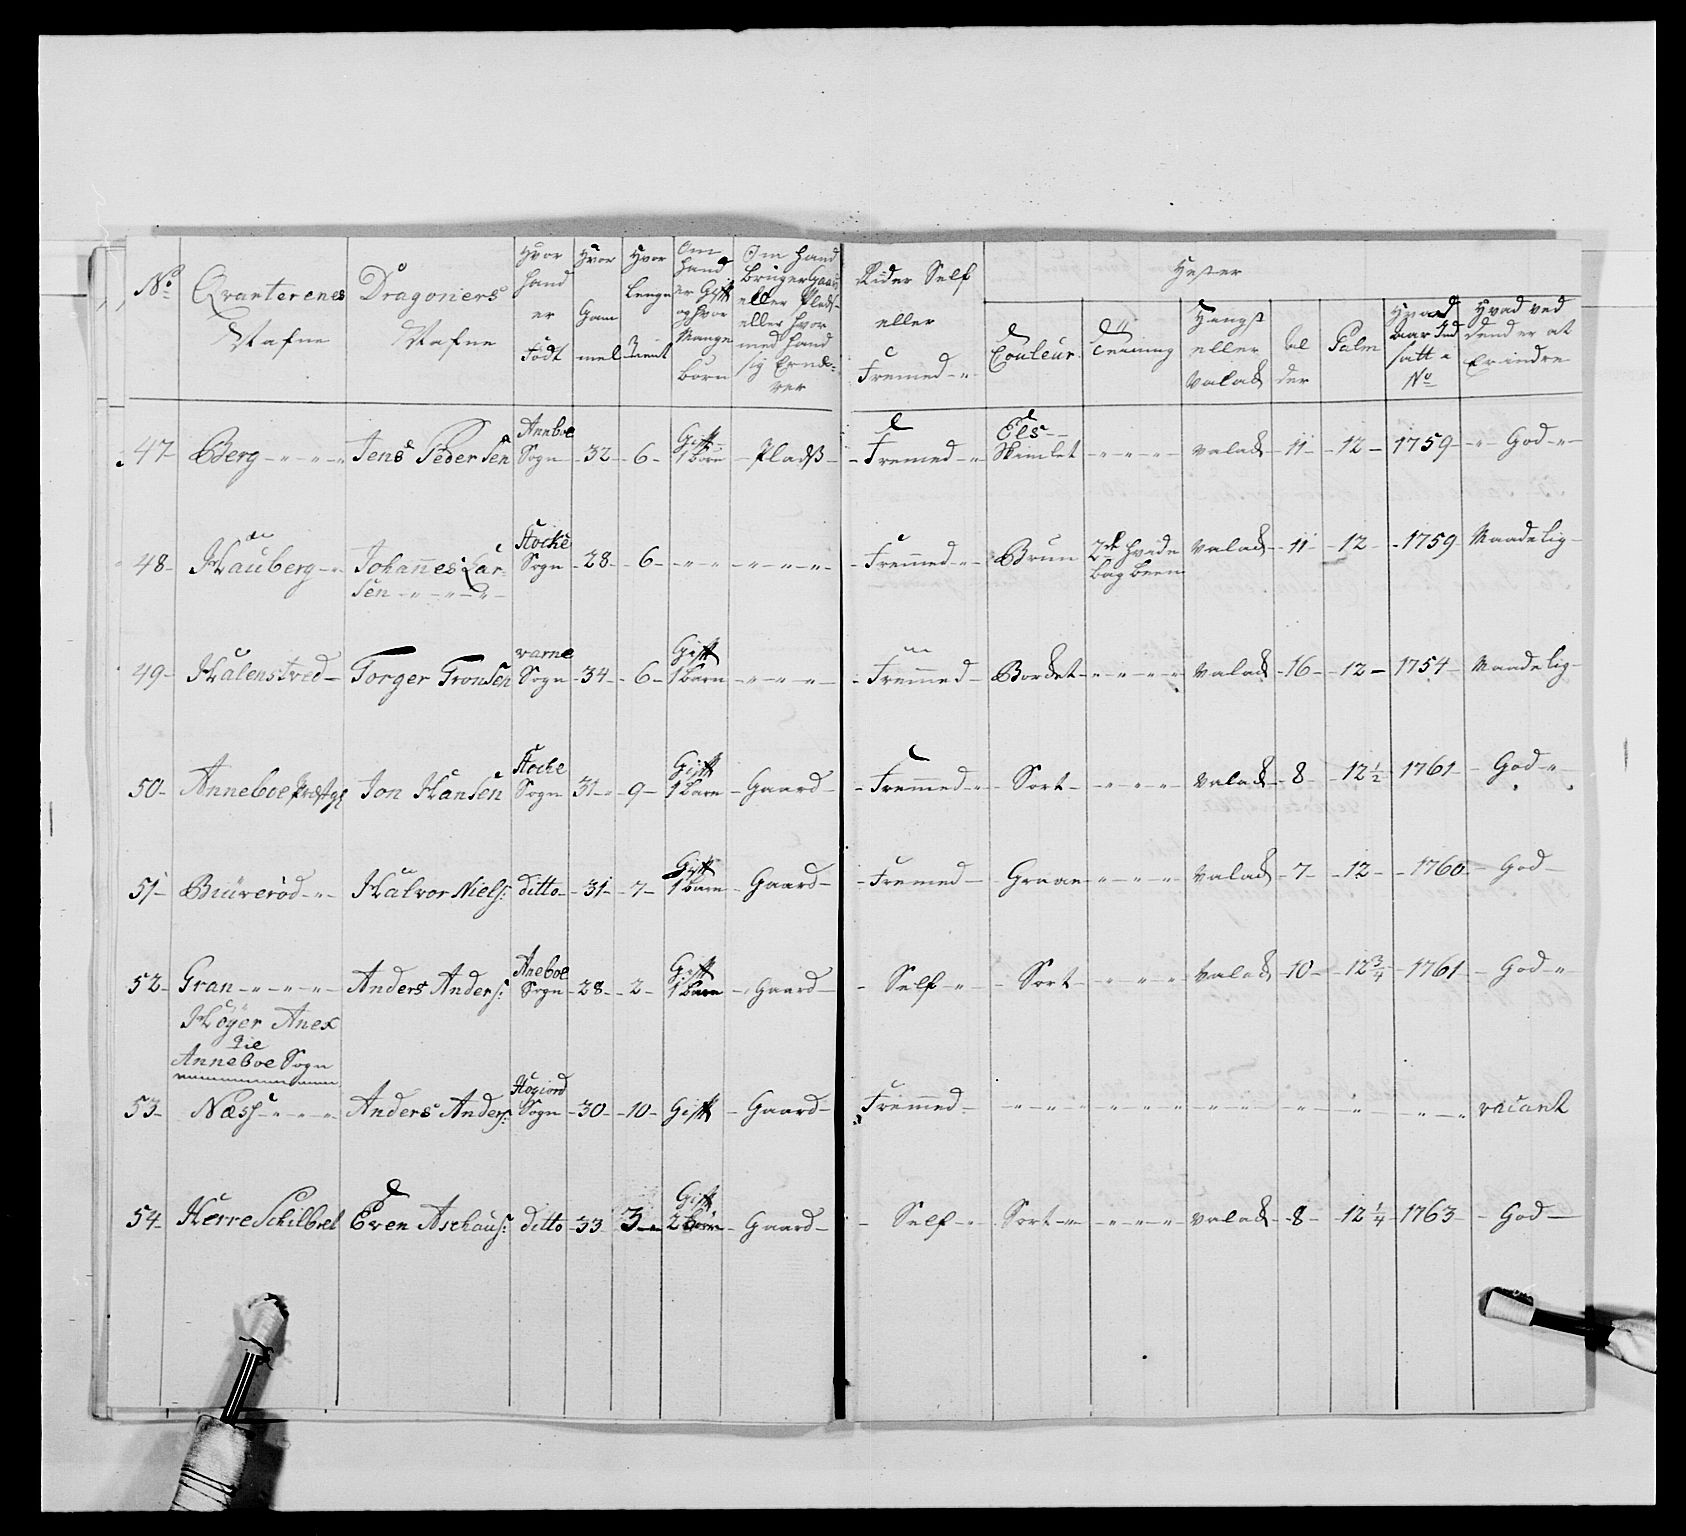 No Qvarterenes Nafne Dragoners Nafne Hvor hand er Födt Hvor Gammel Hvor lenge tient Om hand er Gift og hvor Mange børn Om hand bruger Gaard eller Plads eller hvor med hand sig Ernærer Rider Self eller Fremed Hester
Couleur Teining Hengst eller Valak Alder Palm Hvad aar Ind satt i No Hvad ved dend er at Erindre
47 Berg Jens Pedersen Anneboe Sogn 32 6 Gift 1 barn Pladß Fremed Els Skimlet valak 11 12 1759 God
48 Hauberg Johannes Larsen Stocke Sogn 28 6 Fremmed Brun 2de hvide bag been valak 11 12 1759 Maadelig
49 Halenstved Torger Tronsen varne Sogn 34 6 Gift 1 barn Fremmed Borket valak 16 12 1754 Maadelig
50 Anneboe Præstg: Jon Hansen Stocke Sogn 31 9 Gift 1 barn Gaard Fremmed Sort valak 8 12 1/2 1761 God
51 Biúveröd Halvor Niels: ditto 31 7 Gift 1 barn Gaard Fremed Graae valak 7 12 1760 God
52 Gran Anders Anders: Aneboe Sogn 28 2 Gift 1 barn Gaard Self Sort valak 10 12 3/4 1761 God
Höyer Anex
til
Anneboe Sogn
53 Næss Anders Anders: Sogn 30 10 Gift Gaard Fremmed vacant
54 Herre Schilbret Even Aschaus: ditto 33 3 Gift 2 börn Gaard Self Sort valak 8 12 1/4 1763 God